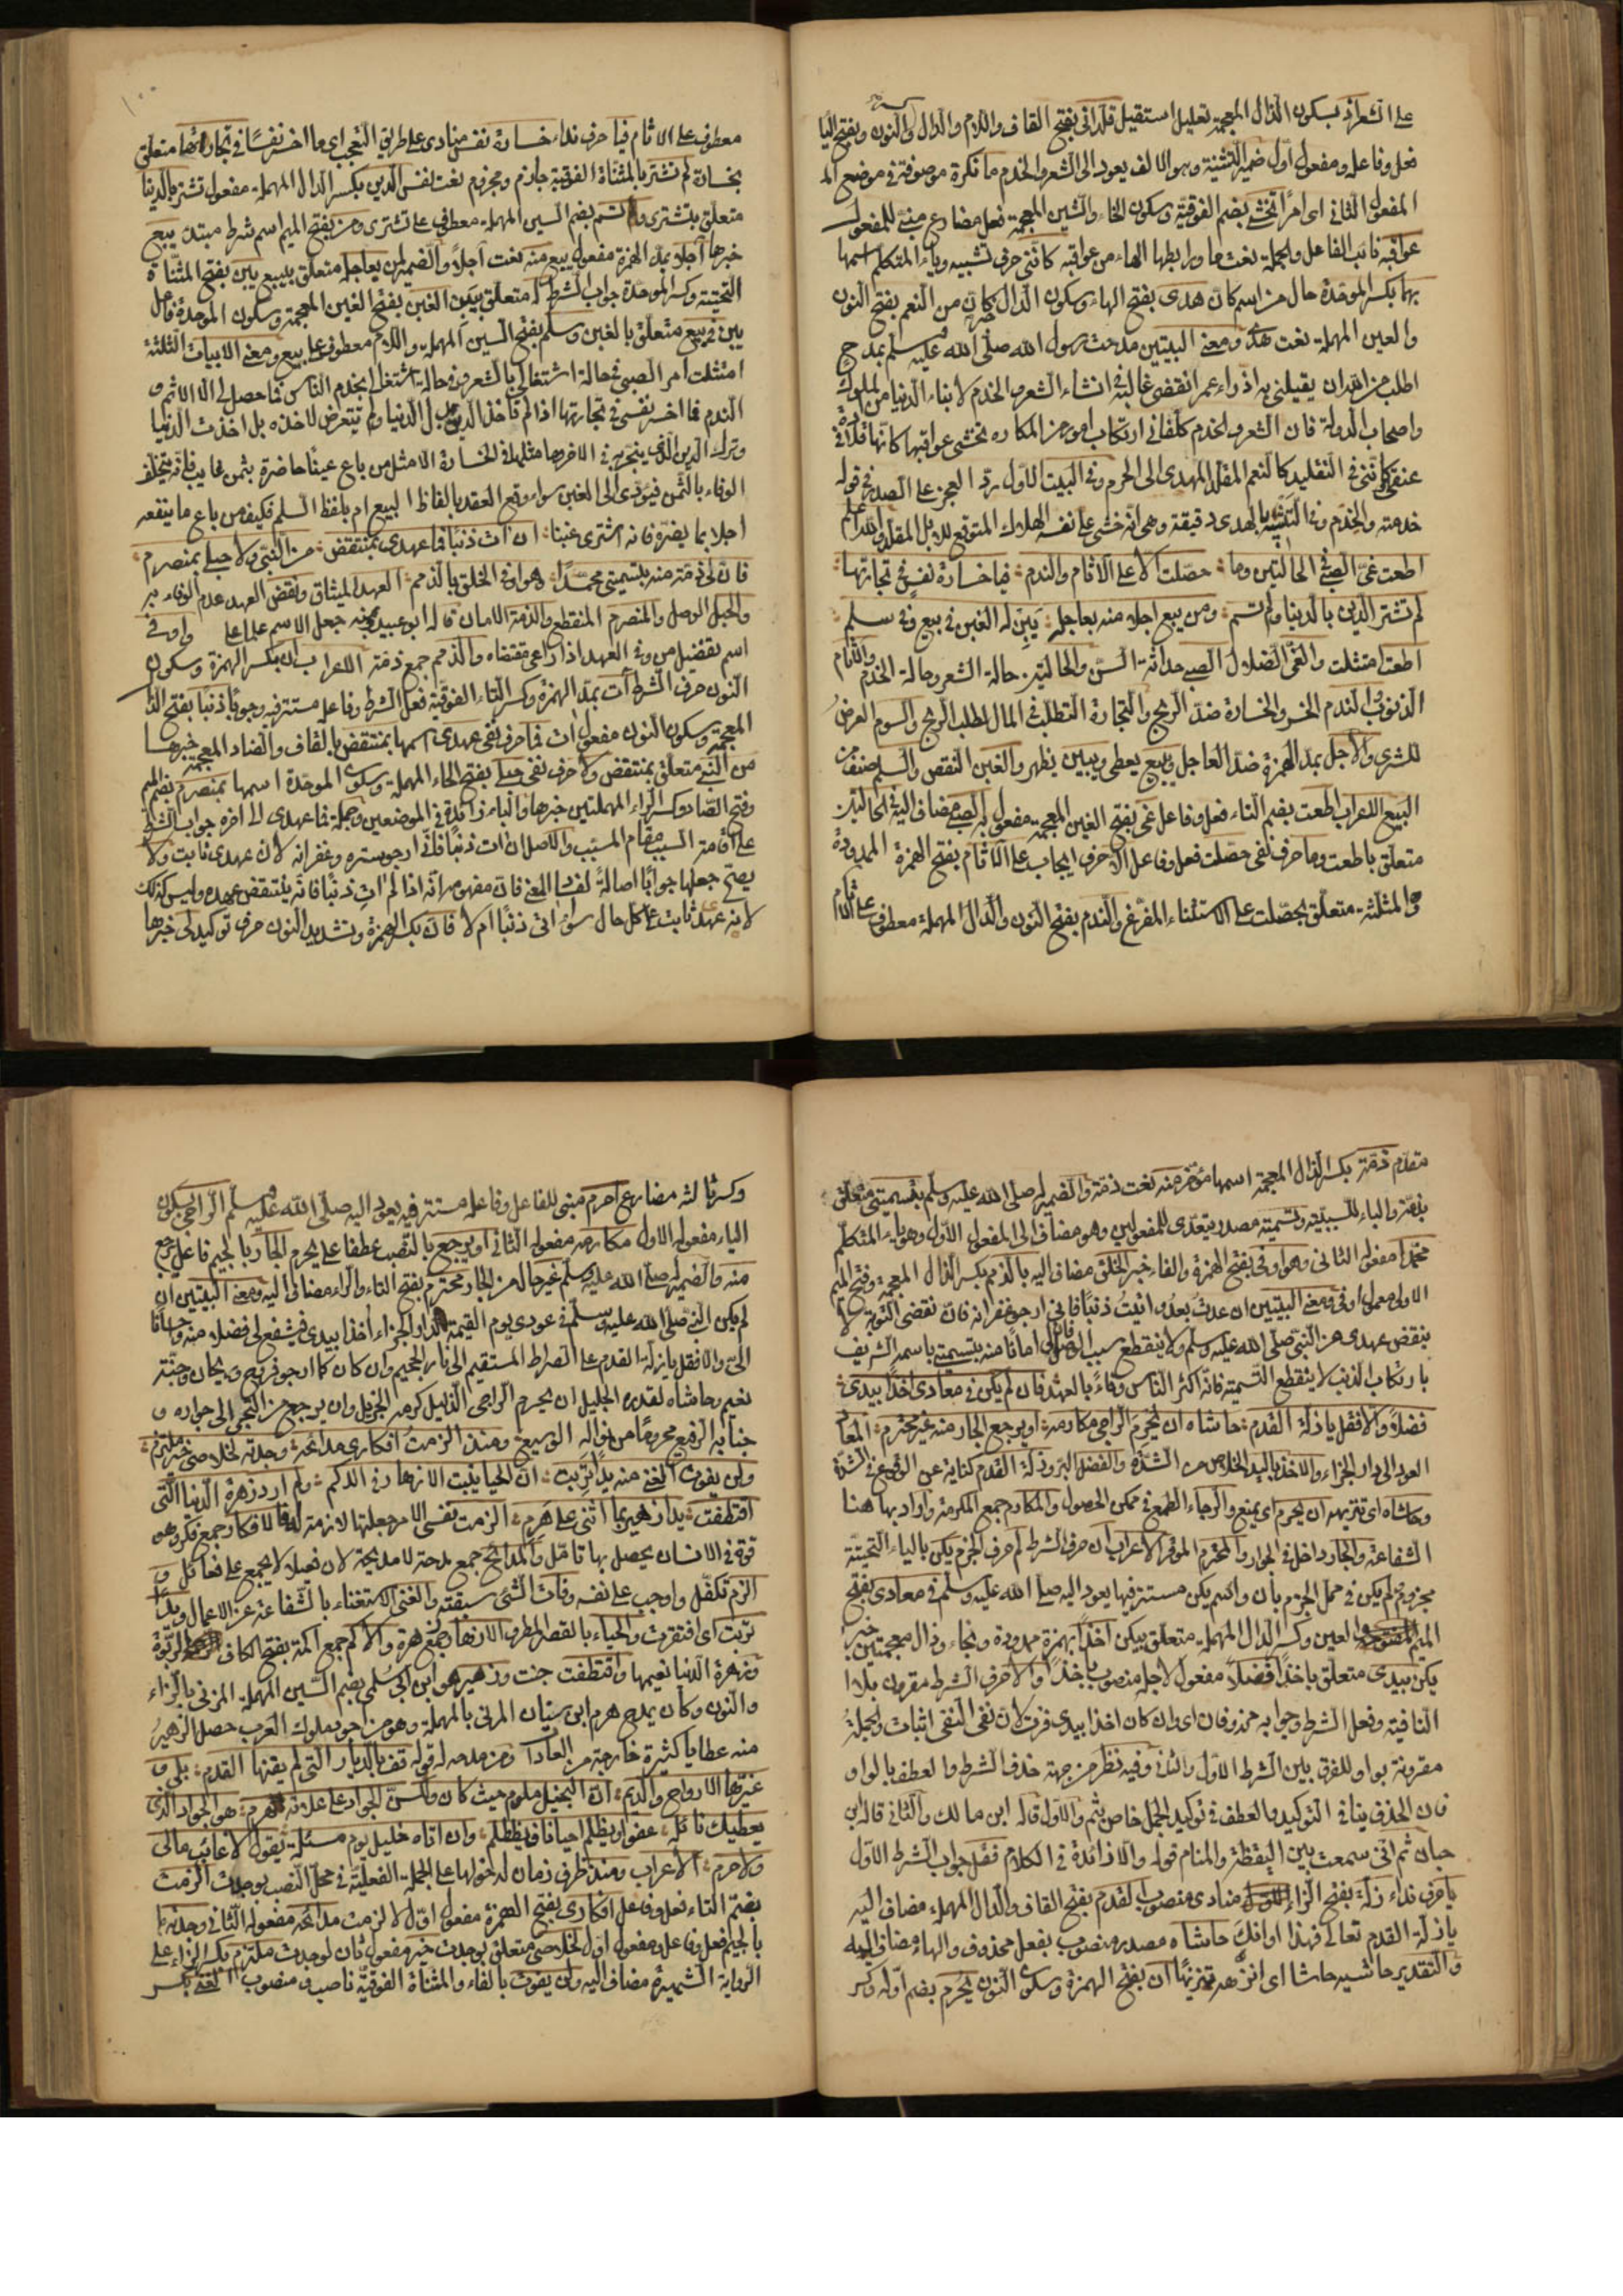 على الشعر اذ بسكون الذال المعجمة تعليل استقيل قلداني بفتح القاف واللام والدال والنون وبفتح اليا
فعل وفاعله ومفعول اول ضمير التثنية وهو الالف يعود الى الشعر والخدم ما نكرة موصوفة في موضع
المفعول الثاني اي امرًا تخشى بضم الفوقية وسكون الخاء والشين المعجمة فعل مضارع مبني للمفعول
عواقبه نائب الفاعل والجملة نعت ما ورابطها الهاء من عواقبه كانني حرف تشبيه وياء المتكلم اسمها
بهما بكسر الموحدة حال من اسم كان هدى بفتح الهاء وسكون الدال خبر كان من النعم بفتح النون
والعين المهملة نعت هدى ومعنى البيتين مدحت رسول الله صلى الله عليه وسلم بمدح
اطلب من الله ان يقيلني به اذ واء عمر انقضى غالبه في انشاء الشعر والخدم لابناء الدنيا من الملوك
واصحاب الدولة فان الشعر والخدم كلفاني ارتكاب امور من المكاره تخشى عواقبها كانها قلادة في
عنقي كانني في التقليد كالنعم المقلد المهدى الى الحرم وفي البيت الاول رد العجز على الصدر في قوله
خدمته والخدم وفي التشبيه بالهدى دقيقة وهي انه خشي على نفسه الهلاك المتوقع للابل المقلد والله اعلم
اطعت غيّ الصبى في الحالتين وما حصلت الا على الاثام والندم فيا خسارة نفس في تجارتها
لم تشتر الدين بالدنيا ولم تسم ومن يبع اجلا منه بعاجله يبن له الغبن في بيع وفي سلم
اطعت امتثلت والغي الضلال الصبى حداثة السن والحالتين حالة الشعر وحالة الخدم والاثام
الذنوب والندم الخسر والخسارة ضد الربح والتجارة التطلب في المال لطلب الربح والسوم العرض
للشرى والاجل بمد الهمزة ضد العاجل ويبع يعطي ويبين يظهر والغبن النقص والسلم صنف من
البيع الاعراب اطعت بضم التاء فعل وفاعل غي بفتح الغين المعجمة مفعول به الصبى مضاف اليه في الحالتين
متعلق باطعت وما حرف نفي حصلت فعل وفاعل الا حرف ايجاب على الاثام بفتح الهمزة الممدودة
والمثلثة متعلق بحصلت على الاستثناء المفرغ والندم بفتح النون والدال المهملة معطوف على الاثام
معطوف على الاثام فيا حرف نداء خسارة نفس منادى على طريق التعجب اي ما اخسر نفسًا في تجارتها متعلق
بخسارة لم تشتر بالمثناة الفوقية جازم ومجزوم نعت لنفس الدين بكسر الدال المهملة مفعول تشتر بالدنيا
متعلق بتشترى ولم تسم بضم السين المهملة معطوف على تشترى ومن بفتح الميم اسم شرط مبتدا يبع
خبرها آجلا بمد الهمزة مفعول يبع منه نعت آجلا والضمير لمن بعاجله متعلق ببيع يبن بفتح المثناة
التحتية وكسر الموحدة جواب الشرط له متعلق بيبن الغبن بفتح الغين المعجمة وسكون الموحدة فاعل
يبن في بيع متعلق بالغبن وسلم بفتح السين المهملة واللام معطوف على بيع ومعنى الابيات الثلثة
امتثلت امر الصبى في حالة اشتغالي بالشعر وفي حالة اشتغالي بخدم الناس فما حصل لي الا الاثم و
الندم فما اخسر نفسي في تجارتها اذا لم تاخذ الدين بدل الدنيا ولم تتعرض لاخذه بل اخذت الدنيا
وترك الدين الذي ينجو به في الاخرة وما مثلها في الخسارة الا مثل من باع عينًا حاضرة بثمن غايب فانه يتخلف
الوفاء بالثمن فيؤدى الى الغبن سواء وقع العقد بالفاظ البيع ام بلفظ السلم فكيف من باع ما ينفعه
اجلا بما يضره فانه اشترى غبنا ان آت ذنبًا فما عهدى بمنتقض من النبي ولا حبلى بمنصرم
فان لي ذمة منه بتسميتي محمدًا وهو اوفى الخلق بالذمم العهد الميثاق ونقض العهد عدم الوفاء به
والحبل الوصل والمنصرم المنقطع والذمة الامان قاله ابو عبيد جعل الاسم علما على واوفى
اسم تفضيل من وفى العهد اذا راعى مقتضاه والذمم جمع ذمة الاعراب ان بكسر الهمزة وسكون
النون حرف الشرط آت بمد الهمزة وكسر التاء الفوقية فعل الشرط وفاعله مستتر فيه وجوبًا ذنبًا بفتح الذا
المعجمة وسكون النون مفعول ات فما حرف نفي عهدى اسمها بمنتقض بالقاف والضاد المعجمة خبرها
من النبي متعلق بمنتقض ولا حرف نفي حبلى بفتح الحاء المهملة وسكون الموحدة اسمها بمنصرم بضم الميم
وفتح الصاد وكسر الراء المهملتين خبرها والباء زائدة في الموضعين وجملة فما عهدى الى اخره جواب الشرط
على اقامة السبب مقام المسبب والاصل ان ات ذنبًا فاني ارجو ستره وغفرانه لان عهدى ثابت ولا
يصح جعلها جوابًا اصالةً لفساد المعنى فان مفهومه انه اذا لم ات ذنبًا فانه ينتقض عهده وليس كذلك
لانه عهد ثابت على كل حال سواء اتى ذنبًا ام لا فان بكسر الهمزة وتشديد النون حرف توكيد لى خبرها
مقدم ذمة بكسر الذال المعجمة اسمها مؤخر منه نعت ذمة والضمير له صلى الله عليه وسلم بتسميتي متعلق
بذمة والباء للسببية وتسمية مصدر يتعدى للمفعولين وهو مضاف الى المفعول الاول وهو ياء المتكلم
محمدا مفعوله الثاني وهو اوفى بفتح الهمزة والفاء خبر الخلق مضاف اليه بالذمم بكسر الذال المعجمة وفتح الميم
الاولى معمول اوفى ومعنى البيتين ان عدت بعد واتيت ذنبًا فاني ارجو غفرانه فان نقضي التوبة لا
ينقض عهدى من النبي صلى الله عليه وسلم ولا ينقطع سبب الوصل فان لي امانًا منه بتسميتي باسمه الشريف
بارتكاب الذنب لا ينقطع التسمية فانه اكثر الناس وفاءً بالعهد فان لم يكن في معادى آخذًا بيدى
فضلا والا فقل يا زلة القدم حاشاه ان يحرم الراجي مكارمه او يرجع الجار منه غير محترم المعاد
العود الى دار الجزاء والاخذ باليد الخلاص من الشدة والفضل البر وزلة القدم كناية عن الوقوع في الشدة
وحاشاه اي تنزيهه ان يحرم اي يمنع والرجاء الطمع في ممكن الحصول والمكارم جمع المكرمة واراد بها هنا
الشفاعة والجار داخل في الجوار والمحترم الموقر الاعراب ان حرف الشرط لم حرف الجزم يكن بالياء التحتية
مجزوم بلم يكن في محل الجزم بان واسم يكن مستتر فيها يعود اليه صلى الله عليه وسلم في معادى بفتح
الميم والعين وكسر الدال المهملة متعلق بيكن آخذًا بهمزة ممدودة وبخاء وذال معجمتين خبر
يكن بيدى متعلق باخذًا فضلا مفعول لاجله منصوب باخذًا والا حرف الشرط مقرون بلا
النافية وفعل الشرط وجوابه محذوفان اي وان كان اخذا بيدى فزت لان نفي النفي اثبات والجملة
مقرونة بواو للفرق بين الشرط الاول والثاني وفيه نظر من جهة حذف الشرط والعطف بالواو
فان الحذف ينافي التوكيد والعطف في توكيد الجمل خاص بثم والاول قاله ابن مالك والثاني قاله ابن
حيان ثم اني سمعت بين اليقظة والمنام قوله والا زائدة في الكلام فقل جواب الشرط الاول
يا حرف نداء زلة بفتح الزاء منادى منصوب القدم بفتح القاف والدال المهملة مضاف اليه
يا زلة القدم تعالى فهذا اوانك حاشاه مصدر منصوب بفعل محذوف والهاء مضاف اليه
والتقدير حاشيه حاشا اي انزهه تنزيهًا ان بفتح الهمزة وسكون النون يُحرم بضم اوله وكسر
وكسر ثالثه مضارع احرم مبني للفاعل وفاعله مستتر فيه يعود اليه صلى الله عليه وسلم الراجي بسكون
الياء مفعوله الاول مكارمه مفعوله الثاني او يرجع بالنصب عطفا على يحرم الجار بالجيم فاعل يرجع
منه والضمير له صلى الله عليه وسلم غير حال من الجار محترم بفتح التاء والراء مضاف اليه ومعنى البيتين ان
لم يكن النبي صلى الله عليه وسلم في عودى يوم القيمة الى دار الجزاء آخذا بيدى فيشفع لي فضلا منه واحسانًا
الي والا فقل يا زلة القدم على الصراط المستقيم الى نار الجحيم وان كان كما ارجو فروح وريحان وجنة
نعيم وحاشاه لقدره الجليل ان يحرم الراجي الذليل كرمه الجزيل وان يرجع من التجى الى جواره و
جنابه الرفيع محرومًا من نواله الوسيع ومنذ الزمت افكارى مدائحه وجدته لخلاصي خير ملتزم
ولن يفوت الغنى منه يدًا تربت ان الحيا ينبت الازهار في الاكم ولم ارد زهرة الدنيا التي
اقتطفت يدا زهير بما اثنى على هرم الزمت نفسي الامر جعلتها لازمة له والافكار جمع فكر وهو
قوة في الانسان يحصل بها تامل والمدائح جمع مدحة لا مديحة لان فعيلا لا يجمع على فعائل و
الزم تكفل واوجب على نفسه وفات الشئ سبقته والغنى الاستغناء بالشفاعة عن الاعمال ويدًا
تربت اي افتقرت والحياء بالقصر المطر والازهار جمع زهرة والاكم جمع اكمة بفتح الكاف الربوة
وزهرة الدنيا نعيمها واقتطفت جنت وزهير هو ابن ابي سلمى بضم السين المهملة المزني بالزاء
والنون وكان يمدح هرم ابن سنان المرني بالمهملة وهو من اجود ملوك العرب حصل الزهير
منه عطايا كثيرة خارجة من العادا ومن مدحه له قوله قف بالديار التي لم يعفها القدم بلى و
غيرها الارواح والديم ان البخيل ملوم حيث كان ولكن الجواد على علاته هرم هو الجواد الذى
يعطيك نائله عفوًا ويظلم احيانا فيظطلم وان اتاه خليل يوم مسئلة يقول لا غائب مالي
ولا حرم الاعراب ومنذ ظرف زمان لدخولها على الجملة الفعلية في محل النصب بوجدت الزمت
بضم التاء فعل وفاعل افكارى بفتح الهمزة مفعول اول لالزمت مدائحه مفعوله الثاني وجدته
بالجيم فعل وفاعل ومفعول اول لخلاصي متعلق بوجدت خير مفعول ثان لوجدت ملتزم بكسر الزاء على
الرواية الشهيرة مضاف اليه ولن يفوت بالفاء والمثناة الفوقية ناصب ومنصوب الغنى بكسر